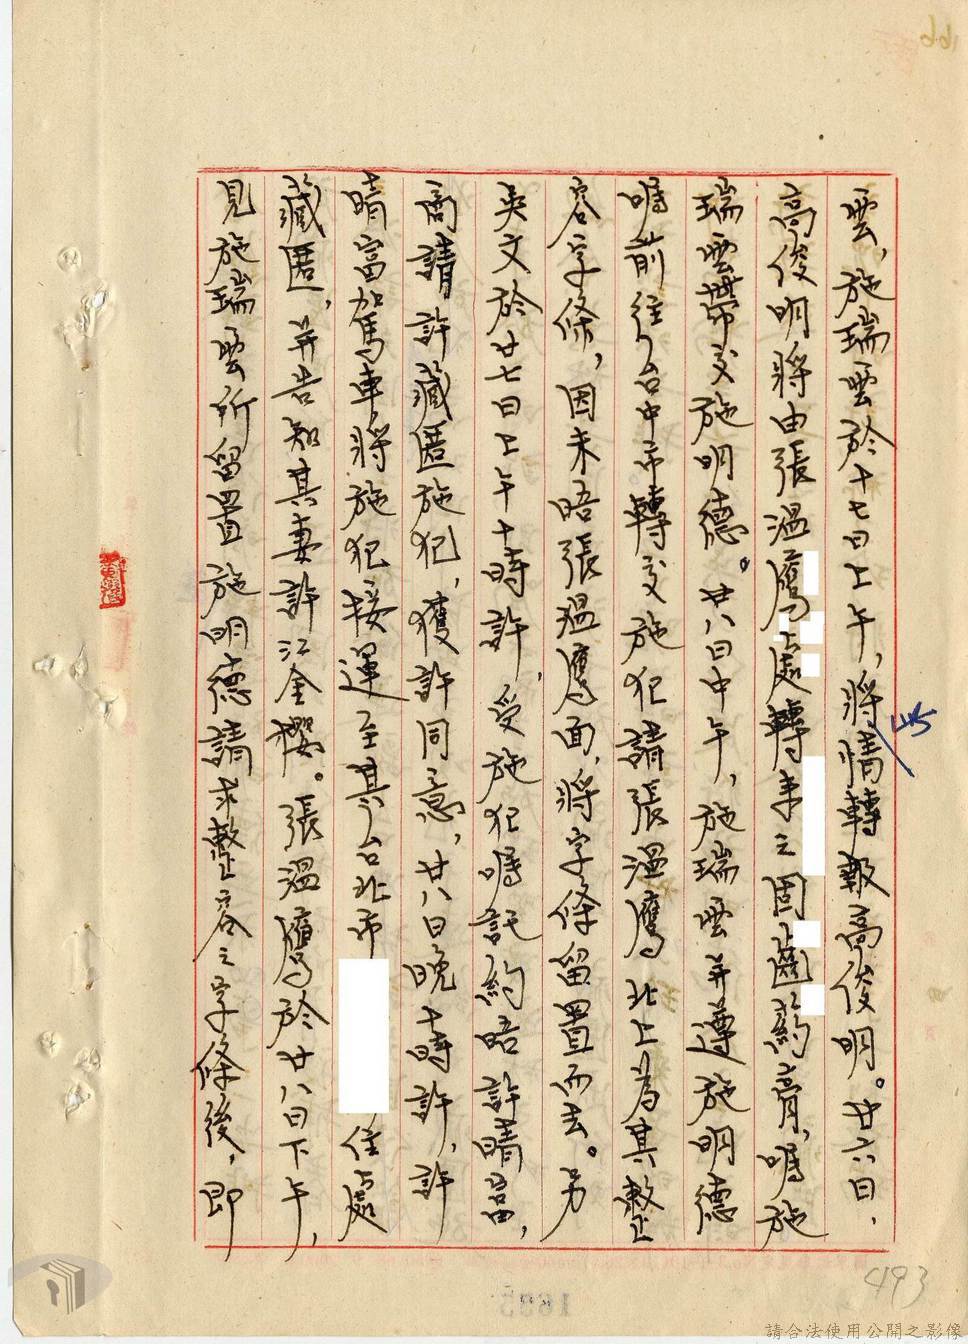 雲，施瑞雲於十七日上午，將情轉報高俊明。廿六日，
高俊明將由張溫鷹處轉來之固齒葯膏，囑施
瑞雲帶交施明德。廿八日中午，施瑞雲并遵施明德
囑前往台中市。轉交施犯請張溫鷹北上為其整
容字條，因未晤張溫鷹面，將字條留置而去。另
吳文於廿七日上午十時許，受施犯囑託約晤許晴富，
商請許藏匿施犯，獲許同意，廿八日晚十時許，許
晴富加馬車將施犯接運至其台北市
住處
藏匿，并告知其妻許江金櫻。張溫鷹於廿八日下午，
見施瑞雲所留置施明德請求整容之字條後，即
493
請合法使用公開之影像